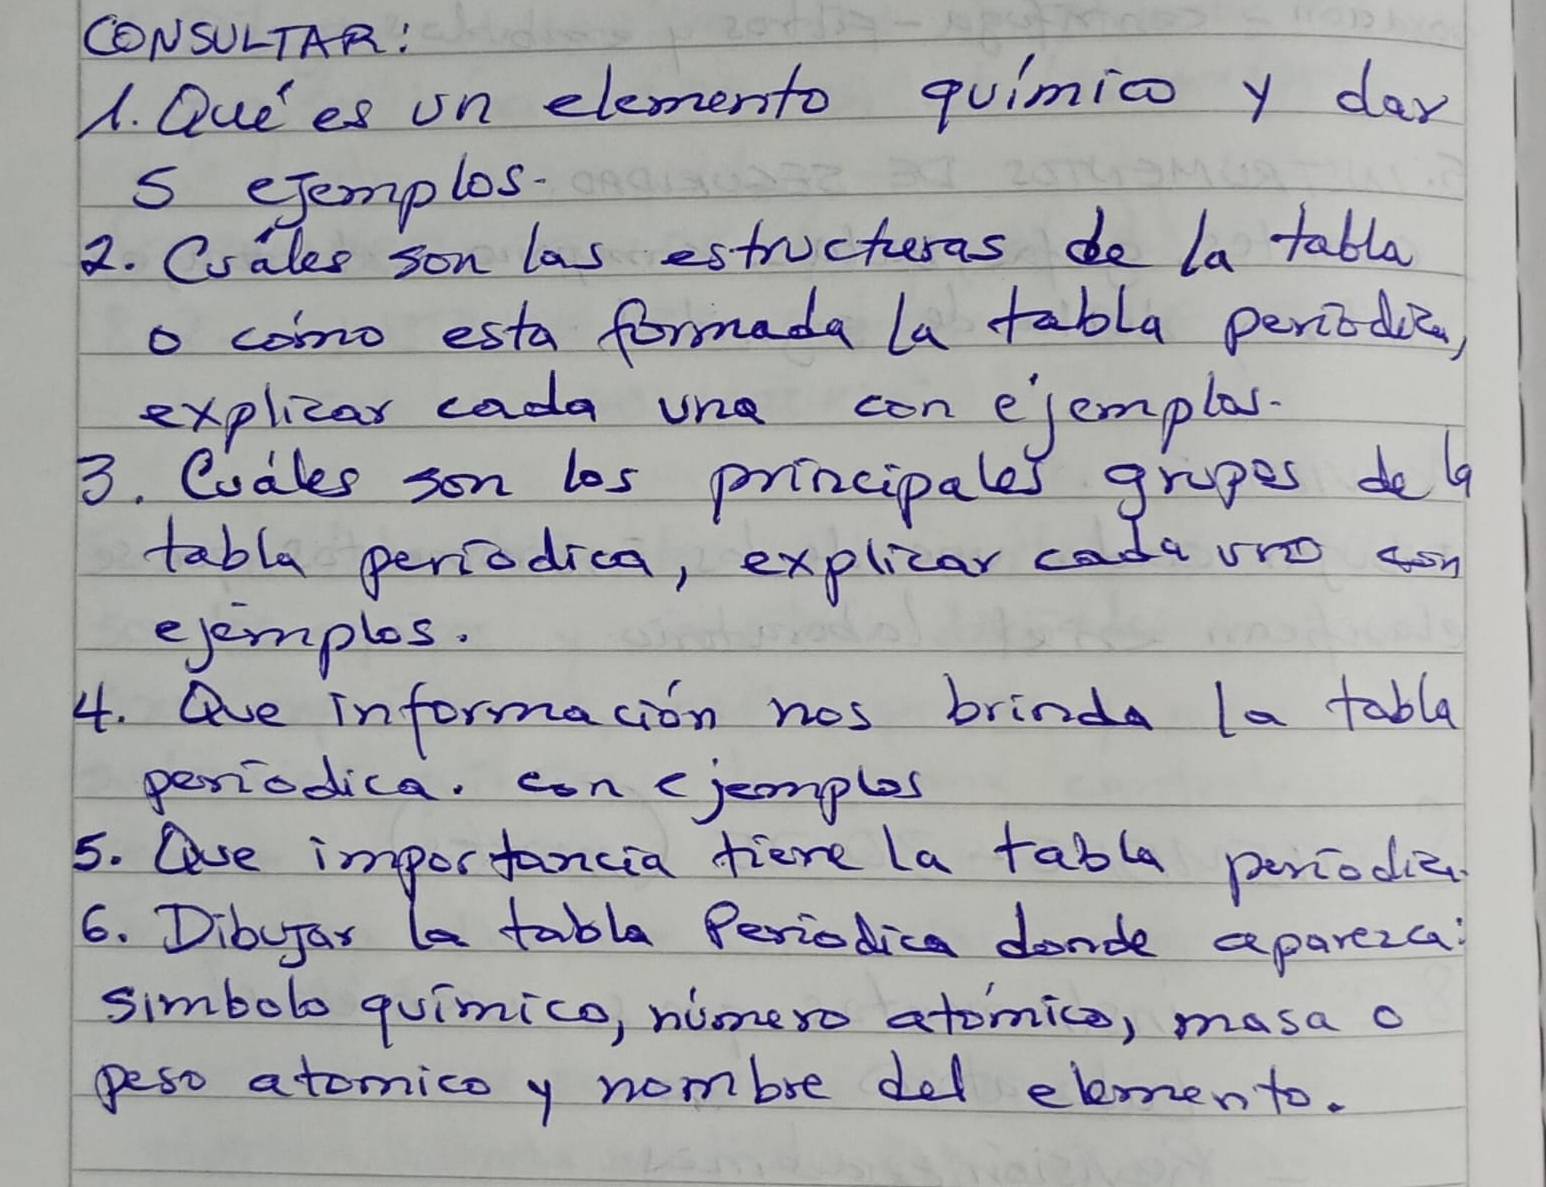 CONSULTAR:
1. Qué es un elemento químico y dar
5 ejemplos.
2. Cuáles son las estructuras de la tabla
o cómo esta formada la tabla periódica,
explicar cada una con ejemplos.
3. Cuáles son los principales grupos de la
tabla periodica, explicar cada uno con
ejemplos.
4. Que información nos brinda la tabla
periodica. con ejemplos
5. Que importancia tiene la tabla periodica.
6. Dibujar la tabla Periodica donde aparezca:
simbolo químico, número atómico, masa o
peso atomico y nombre del elemento.